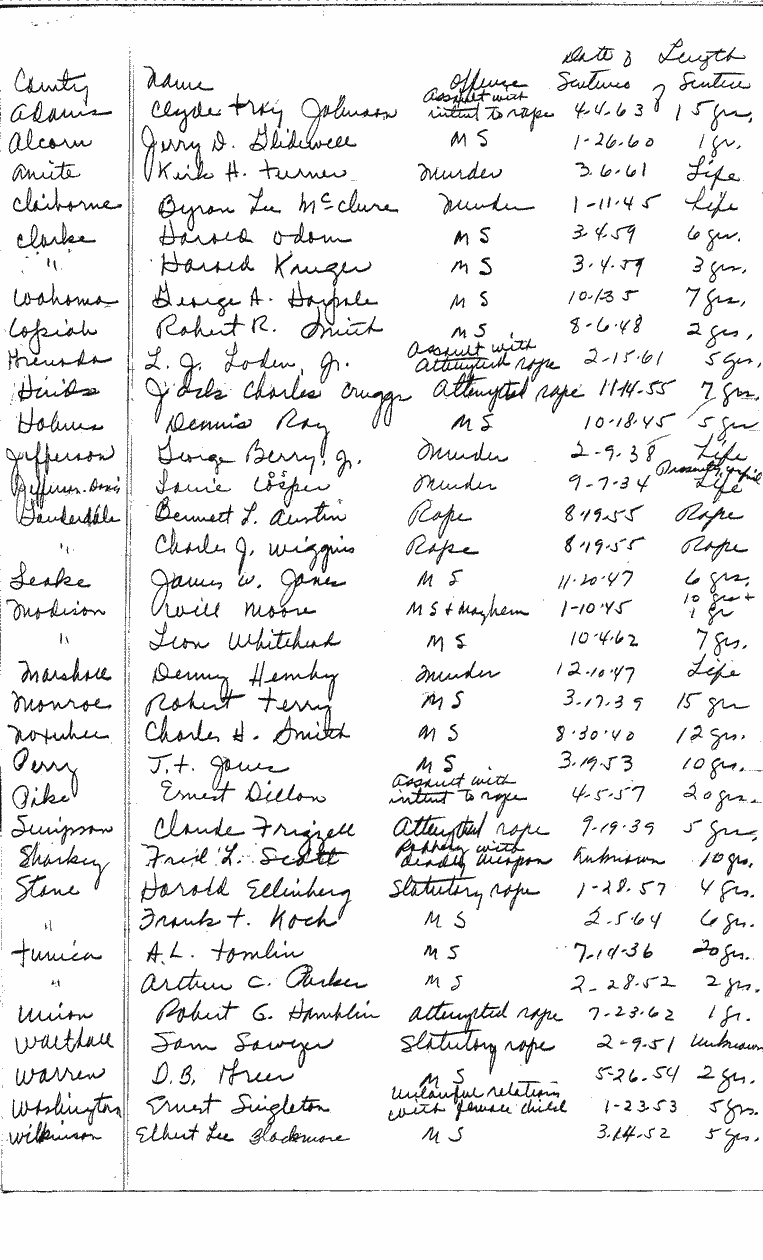 Date of Length
County Name Offense Sentences of Sentence
Adams Clyde Troy Johnson Assault with intent to rape 4-4-63 15 yrs.
Alcorn Jerry D. Glidewell M S 1-26-60 1 yr.
Amite Kirk H. Turner Murder 3-6-61 Life
Claiborne Byron Lee McClure Murder 1-11-45 Life
Clarke Harold Odom M S 3-4-59 6 yrs.
" Harold Kruger M S 3-4-59 3 yrs.
Coahoma George A. M S 7 yrs.
Copiah Robert R. Smith M S 8-6-48 2 yrs.
Grenada L. J. Loden, Jr. Assault with Attempted rape 2-15-61 5 yrs.
Hinds Jack Charles Cruggs Attempted rape 11-14-55 7 yrs.
Holmes Dennis Ray M S 10-18-45 5 yrs
Jefferson George Berry, Jr. Murder 2-9-38 Life
Jefferson-Davis Louie Cosper Murder 9-7-34 Life
Lauderdale Bennett L. Austin Rape 8-19-55 Rape
" Charles J. Wiggins Rape 8-19-55 Rape
Leake James W. Jones M S 11-20-47 6 yrs.
Madison Will Moore M S + Mayhem 1-10-45 10 yrs + 1 yr
" Leon Whitehead M S 10-4-62 7 yrs.
Marshall Denny Hemby Murder 12-10-47 Life
Monroe Robert Terry M S 3-17-39 15 yrs
Noxubee Charles H. Smith M S 8-30-40 12 yrs.
Perry J. T. Jones M S 3-19-53 10 yrs.
Pike Ernest Dillon Assault with intent to rape 4-5-57 20 yrs.
Simpson Claude Frizzell Attempted rape 9-19-39 5 yrs.
Sharkey Fred L. Scott Robbery with deadly weapon Unknown 10 yrs.
Stone Harold Ellinberg Statutory rape 1-28-57 4 yrs.
" Frank T. Koch M S 2-5-64 6 yrs.
Tunica A. L. Tomlin M S 7-14-36 20 yrs.
" Arthur C. Parker M S 2-28-52 2 yrs.
Union Robert G. Hamblin attempted rape 7-23-62 1 yr.
Walthall Sam Sawyer Statutory rape 2-9-51 Unknown
Warren D. B. Greer M S 5-26-54 2 yrs.
Washington Ernest Singleton Unlawful relations with female child 1-23-53 5 yrs.
Wilkinson Elbert Lee Blackmore M S 3-14-52 5 yrs.